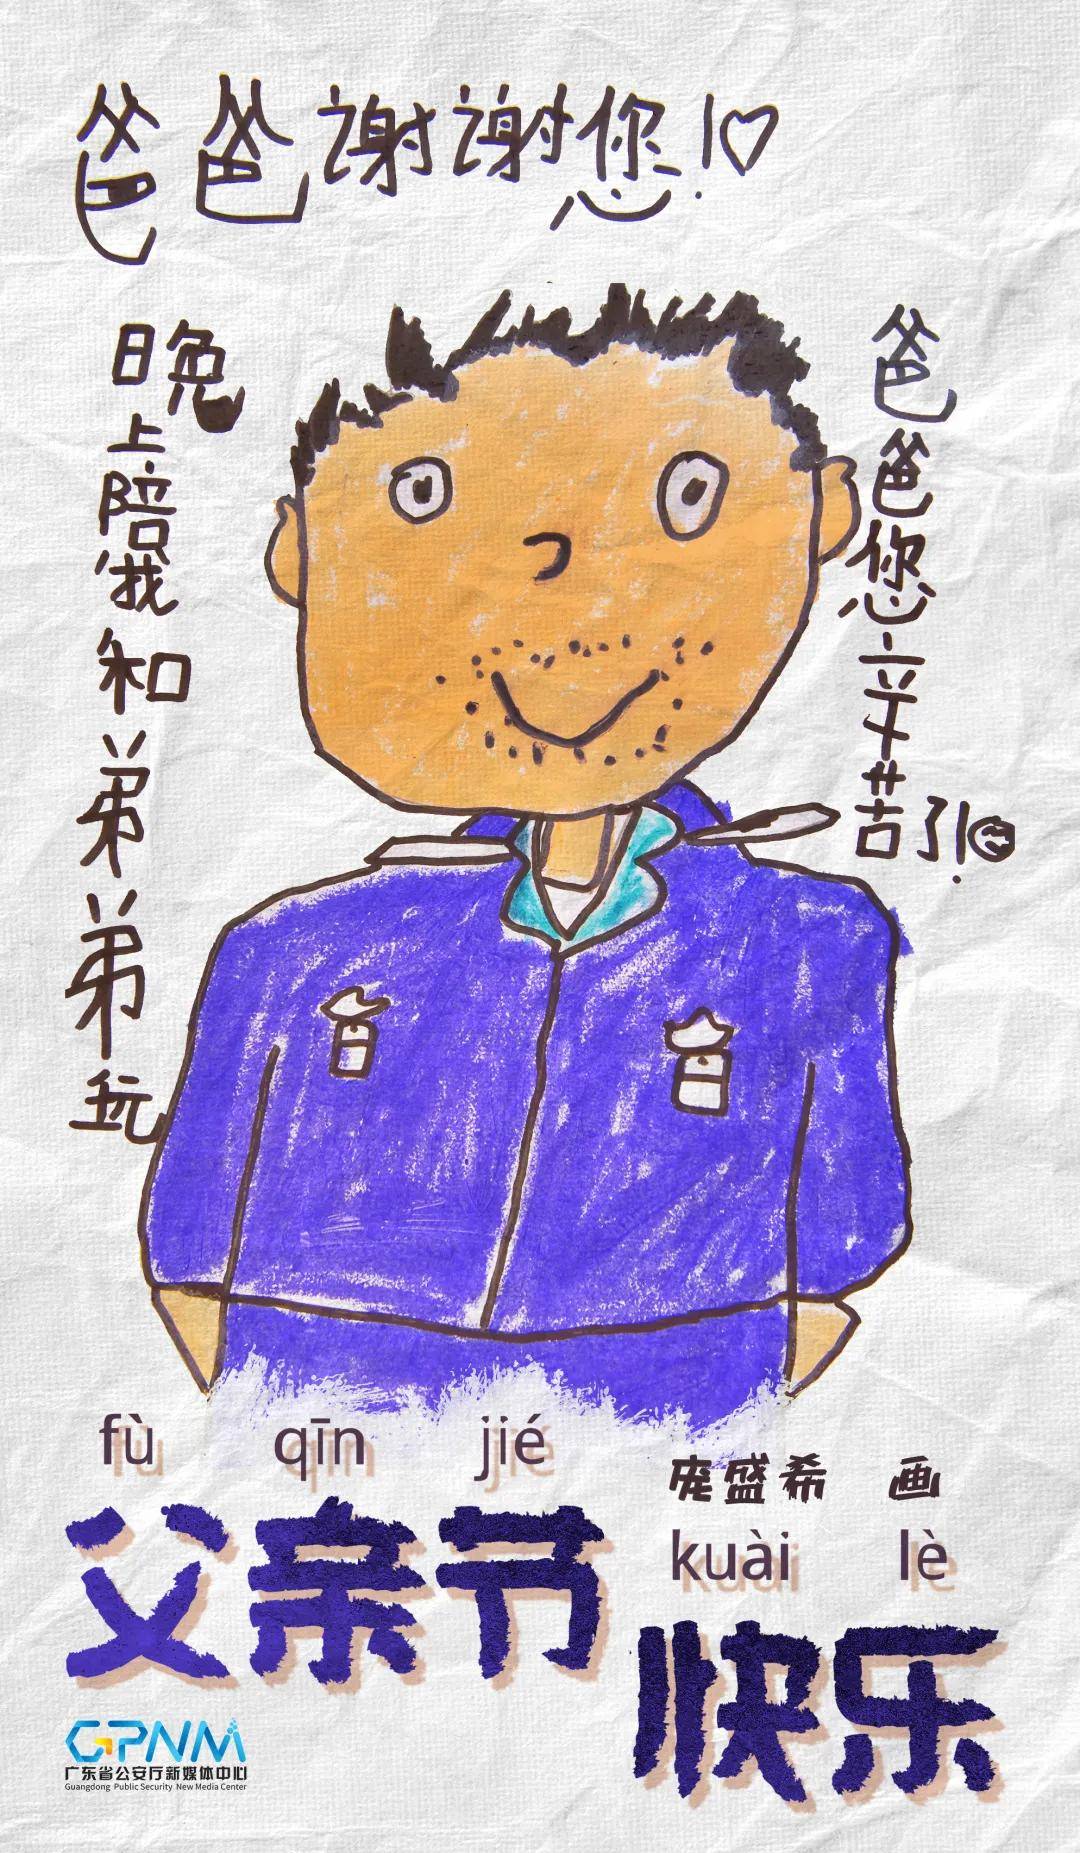 爸爸谢谢您!♡
晚上陪我和弟弟玩
爸爸您辛苦了!
fù qīn jié
父亲节
庞盛希 画
kuài lè
快乐
GPNM
广东省公安厅新媒体中心
Guangdong Public Security New Media Center